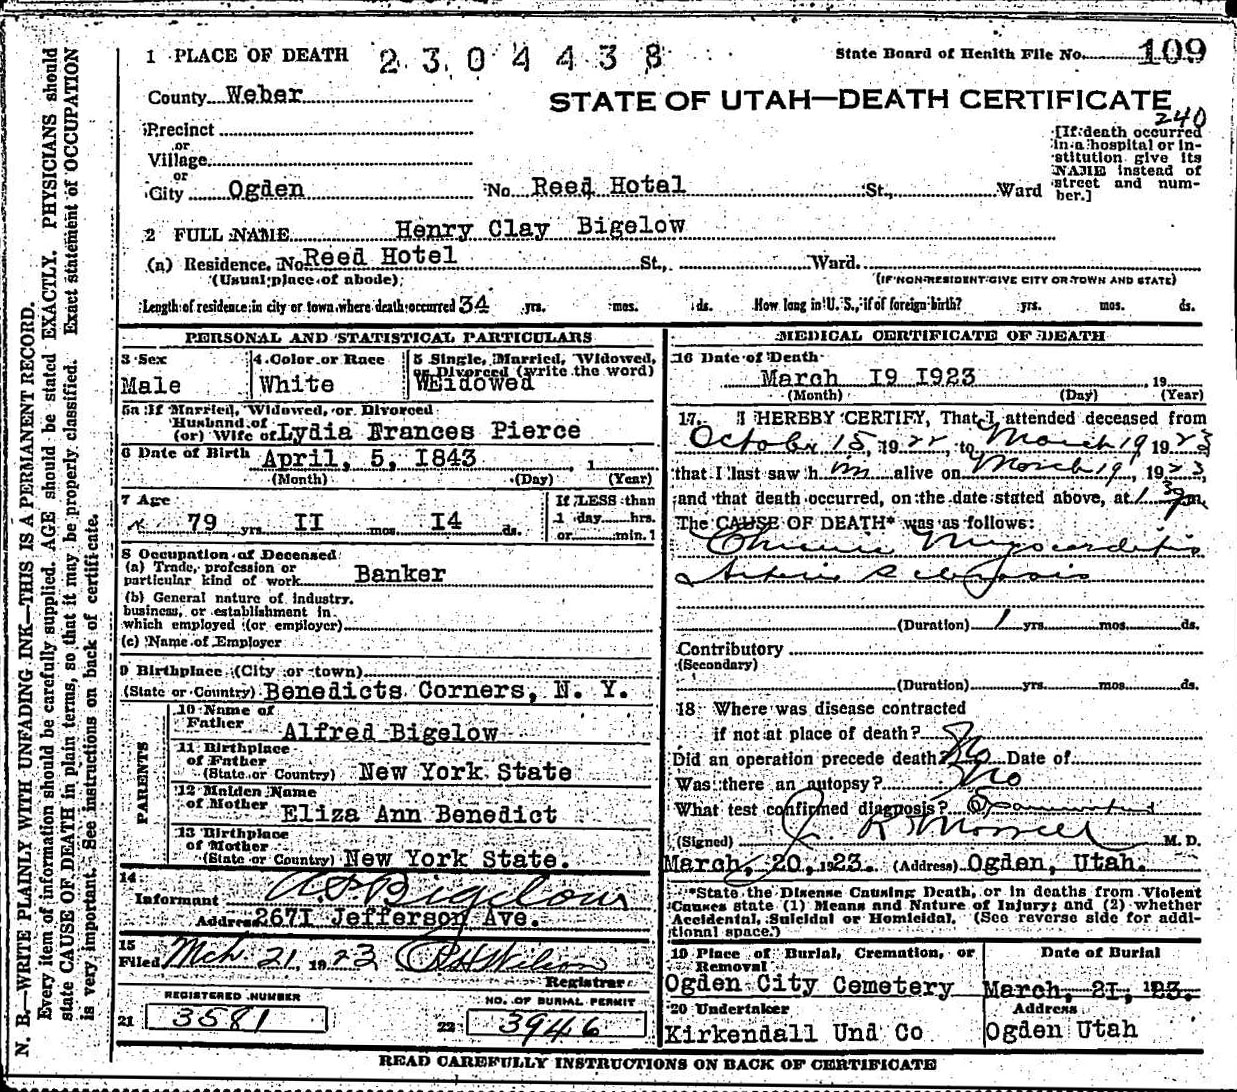 1 PLACE OF DEATH 2304438 State Board of Health File No. 109
County Weber STATE OF UTAH—DEATH CERTIFICATE
240
Precinct
or
Village
or
City Ogden No. Reed Hotel St., Ward
[If death occurred in a hospital or institution give its NAME instead of street and number.]
2 FULL NAME Henry Clay Bigelow
(a) Residence. No. Reed Hotel St., Ward.
(Usual place of abode) (IF NON-RESIDENT GIVE CITY OR TOWN AND STATE)
Length of residence in city or town where death occurred 34 yrs. mos. ds. How long in U. S., if of foreign birth? yrs. mos. ds.
PERSONAL AND STATISTICAL PARTICULARS
3 Sex 4 Color or Race 5 Single, Married, Widowed,
or Divorced (write the word)
Male White WEidowed
5a If Married, Widowed, or Divorced
Husband of
(or) Wife of Lydia Frances Pierce
6 Date of Birth April, 5, I843, 1
(Month) (Day) (Year)
7 Age If LESS than
79 yrs. II mos. I4 ds. 1 day hrs.
or min.?
8 Occupation of Deceased
(a) Trade, profession or
particular kind of work Banker
(b) General nature of industry,
business, or establishment in
which employed (or employer)
(c) Name of Employer
9 Birthplace (City or town)
(State or Country) Benedicts Corners, N. Y.
PARENTS
10 Name of
Father Alfred Bigelow
11 Birthplace
of Father
(State or Country) New York State
12 Maiden Name
of Mother Eliza Ann Benedict
13 Birthplace
of Mother
(State or Country) New York State.
14
Informant A P Bigelow
Address 267I Jefferson Ave.
15
Filed Mch 21, 1923 Wilson
Registrar
REGISTERED NUMBER NO. OF BURIAL PERMIT
21 3581 22 3946
MEDICAL CERTIFICATE OF DEATH
16 Date of Death
March I9 I923, 19
(Month) (Day) (Year)
17. I HEREBY CERTIFY, That I attended deceased from
October 15, 1922, to March 19 1923
that I last saw him alive on March 19, 1923,
and that death occurred, on the date stated above, at 1 30 pm.
The CAUSE OF DEATH* was as follows:
Chronic Myocarditis
Arterio Sclerosis
(Duration) 1 yrs. mos. ds.
Contributory
(Secondary)
(Duration) yrs. mos. ds.
18 Where was disease contracted
if not at place of death? No
Did an operation precede death? No Date of
Was there an autopsy? No
What test confirmed diagnosis?
(Signed) Morrell M. D.
March, 20, 1923. (Address) Ogden, Utah.
*State the Disease Causing Death, or in deaths from Violent
Causes state (1) Means and Nature of Injury; and (2) whether
Accidental, Suicidal or Homicidal. (See reverse side for addi-
tional space.)
19 Place of Burial, Cremation, or Date of Burial
Removal
Ogden City Cemetery March, 2I, 1923.
20 Undertaker Address
Kirkendall Und Co Ogden Utah
READ CAREFULLY INSTRUCTIONS ON BACK OF CERTIFICATE
N. B.—WRITE PLAINLY WITH UNFADING INK—THIS IS A PERMANENT RECORD.
Every item of information should be carefully supplied. AGE should be stated EXACTLY. PHYSICIANS should
state CAUSE OF DEATH in plain terms, so that it may be properly classified. Exact statement of OCCUPATION
is very important. See instructions on back of certificate.